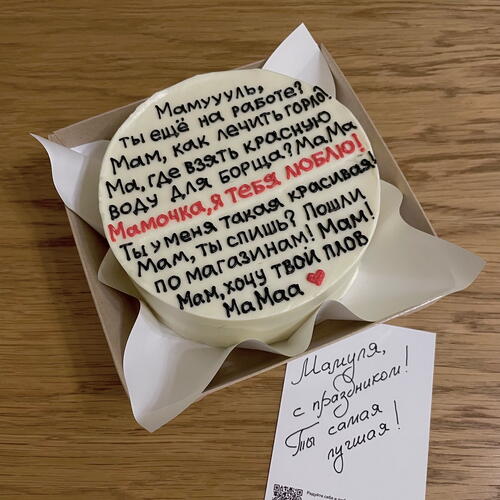 Мамуууль,
ты ещё на работе?
Мам, как лечить горло?
Ма, где взять красную
воду для борща? МаМа
Мамочка, я тебя люблю!
Ты у меня такая красивая!
Мам, ты спишь? Пошли
по магазинам! Мам!
Мам, хочу твой плов
МаМаа
Мамуля,
с праздником!
Ты самая
лучшая!
Радуйте себя и